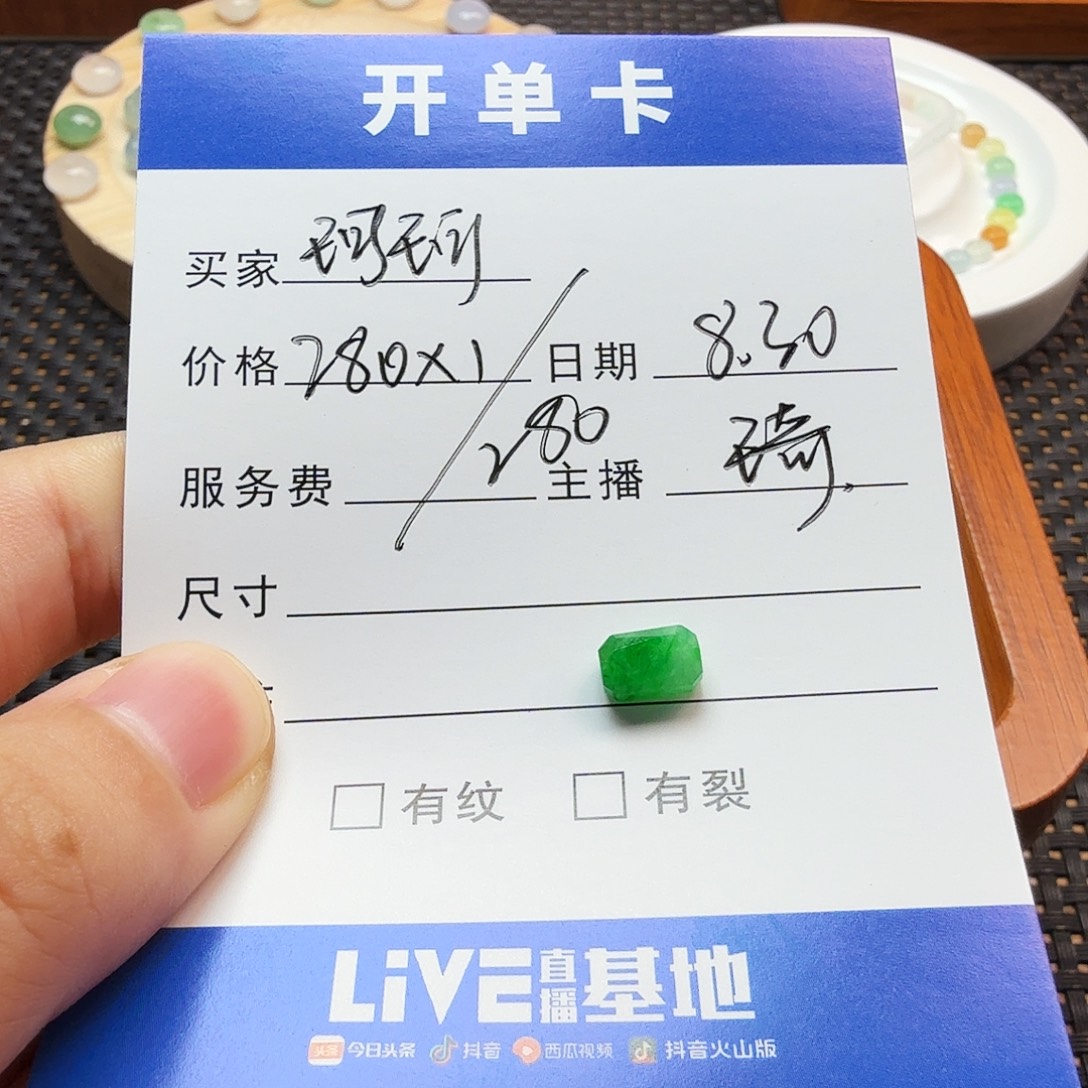 开单卡
买家 珂珂
价格 280×1 日期 8.30
服务费 280 主播 琦
尺寸
有纹 有裂
LiVE直播基地
头条 今日头条 抖音 西瓜视频 抖音火山版